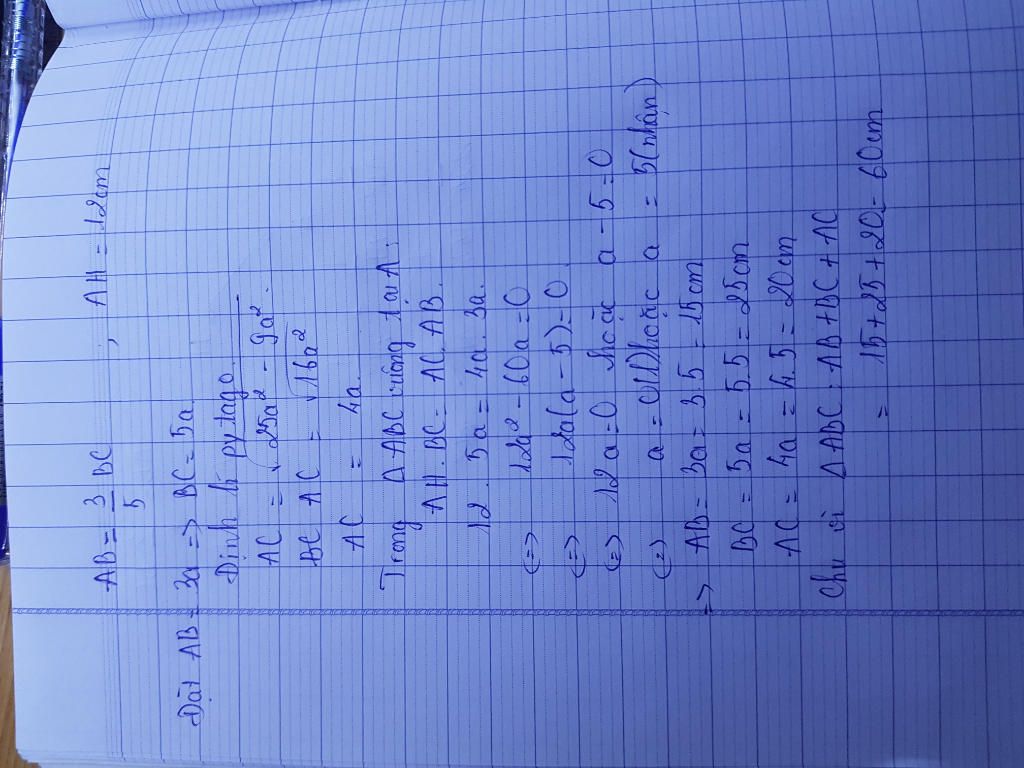 AB = 3/5 BC , AH = 12cm
Đặt AB = 3a => BC = 5a
Định lí pytago.
AC = √25a² - 9a².
BC AC = √16a²
AC = 4a.
Trong Δ ABC vuông tại A.
AH. BC = AC. AB.
12 . 5a = 4a. 3a.
(=> 12a² - 60a = 0
(=> 12a(a - 5) = 0.
(=> 12a = 0 hoặc a - 5 = 0
(=) a = 0(l) hoặc a = 5(nhận)
=> AB = 3a = 3.5 = 15cm
BC = 5a = 5.5 = 25cm
AC = 4a = 4.5 = 20cm
Chu vi Δ ABC : AB + BC + AC
= 15 + 25 + 20 = 60cm